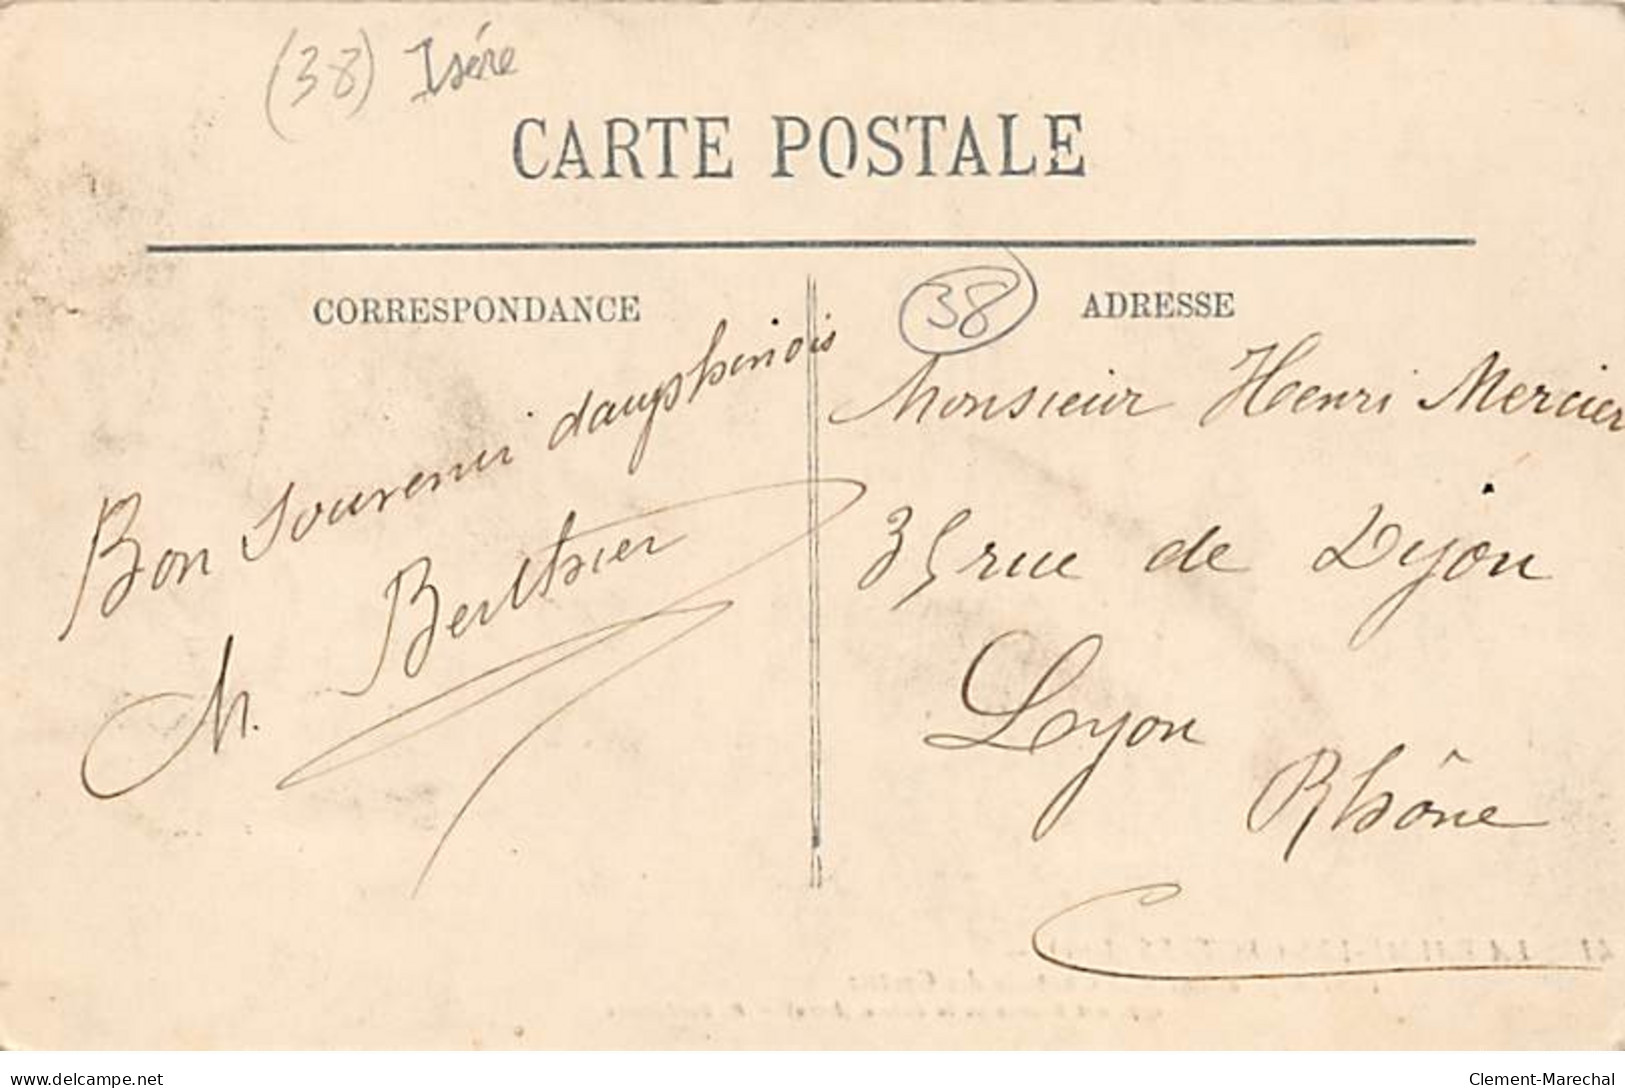 (38) Isére
CARTE POSTALE
CORRESPONDANCE
Bon souvenir dauphinois
M. Berthier
38
ADRESSE
Monsieur Henri Mercier
35 rue de Dijon
Lyon
Rhône
delcampe.net
Clement-Marechal